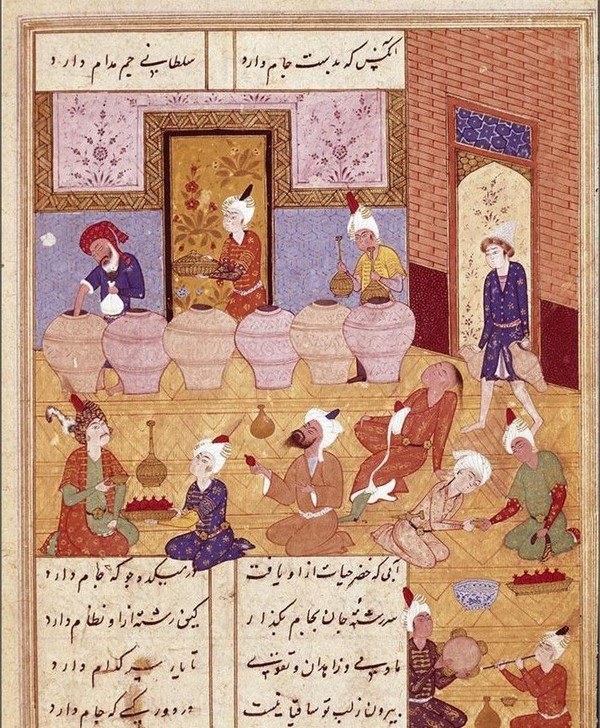 آنکس که بدست جام دارد سلطانی جم مدام دارد
آبی که خضر حیات ازو یافت در میکده جو که جام دارد
سر رشته جان بجام بگذار کین رشته ازو نظام دارد
ما و می و زاهدان و تقوی تا یار سر کدام دارد
بیرون ز لب تو ساقیا نیست در دور کسی که کام دارد